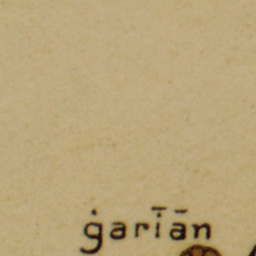 ġarīān